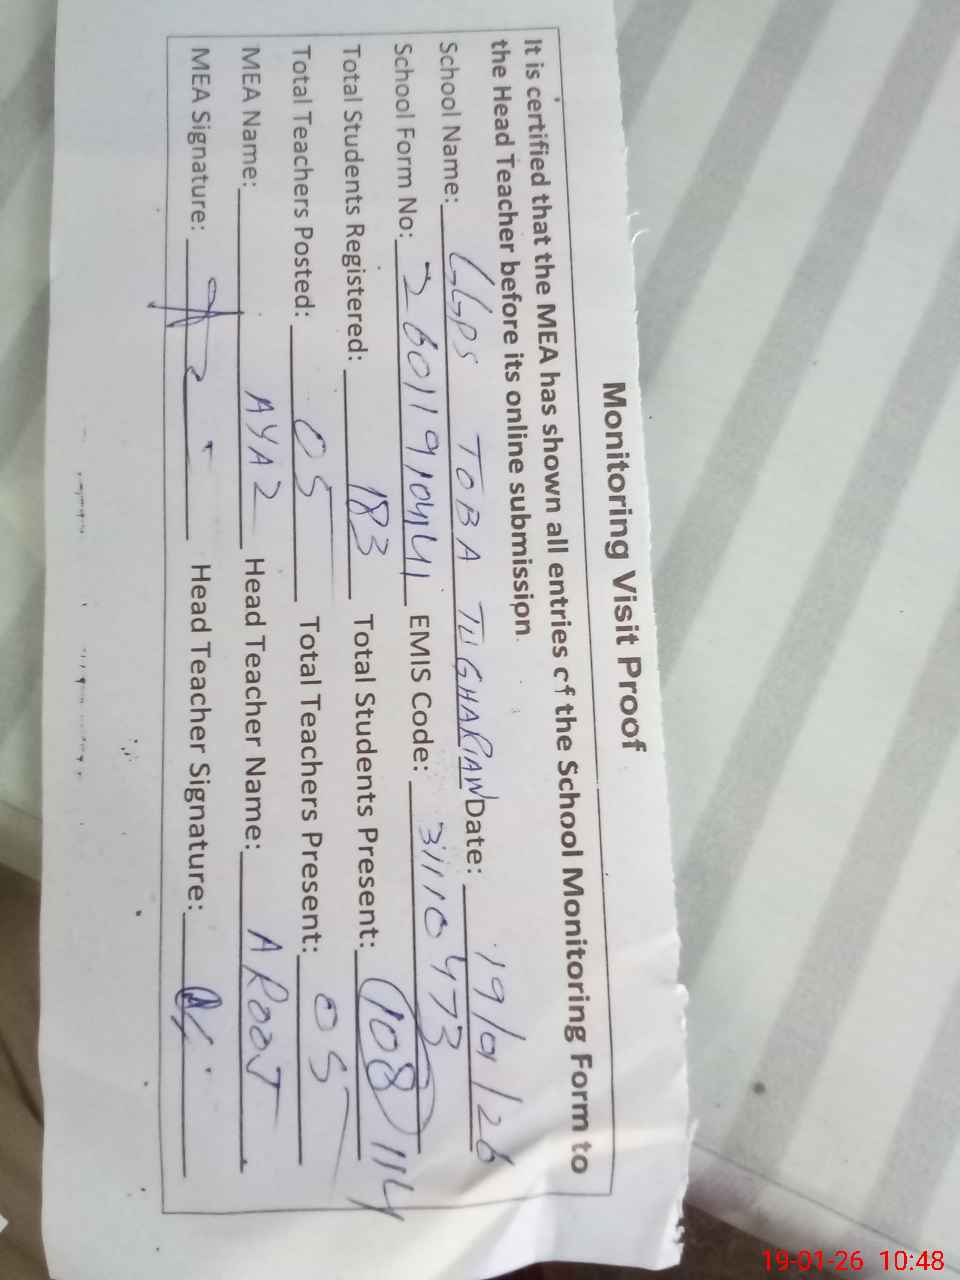 Monitoring Visit Proof
It is certified that the MEA has shown all entries of the School Monitoring Form to
the Head Teacher before its online submission.
School Name: GGPS TOBA TUGHARIAN Date: 19/01/26
School Form No: 2601191041 EMIS Code: 31110473
Total Students Registered: 183 Total Students Present: 108 114
Total Teachers Posted: 05 Total Teachers Present: 05
MEA Name: AYAZ Head Teacher Name: AROOJ
MEA Signature: Head Teacher Signature:
19-01-26 10:48